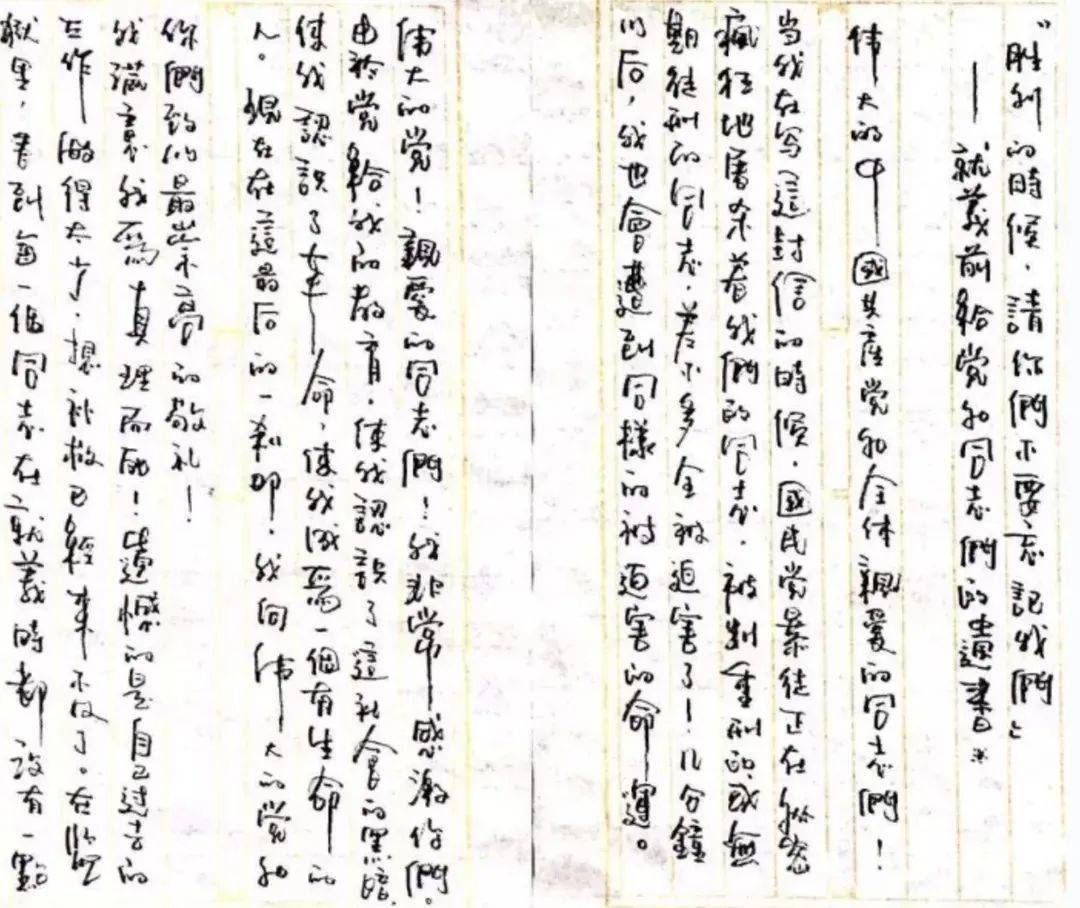 “胜利的時候，請你們不要忘記我們”
——就義前給党和同志們的遺書*
伟大的中國共產党和全体親愛的同志們！
当我在写這封信的時候，國民党暴徒正在秘密
瘋狂地屠杀着我們的同志，被判重刑的或無
期徒刑的同志，差不多全被迫害了！几分鐘
以后，我也會遭到同樣的被迫害的命運。
偉大的党！親愛的同志們！我非常感激你們。
由於党給我的教育，使我認識了這社會的黑暗，
使我認識了革命，使我成爲一個有生命的
人。現在在這最后的一刹那，我向偉大的党和
你們致以最崇高的敬礼！
我滿意我爲真理而死！遺憾的是自己过去的
工作做得太少，想补救已經來不及了。在監
獄里，看到每一個同志在就義時都没有一點